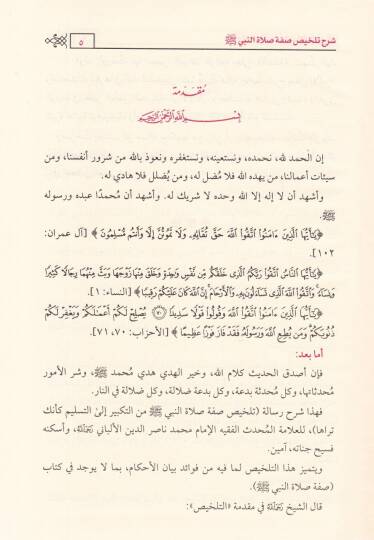 شرح تلخيص صفة صلاة النبي ﷺ
٥
مُقدمة
بسم الله الرحمن الرحيم
إن الحمد لله، نحمده، ونستعينه، ونستغفره ونعوذ بالله من شرور أنفسنا، ومن
سيئات أعمالنا، من يهده الله فلا مُضل له، ومن يُضلل فلا هادي له.
وأشهد أن لا إله إلا الله وحده لا شريك له. وأشهد أن مُحمدًا عبده ورسوله
ﷺ.
﴿يَتَأَيُّهَا الَّذِينَ ءَامَنُوا اتَّقُوا اللَّهَ حَقَّ تُقَاتِهِ وَلَا تَمُوتُنَّ إِلَّا وَأَنتُم مُّسْلِمُونَ﴾ [آل عمران:
١٠٢].
﴿يَتَأَيُّهَا النَّاسُ اتَّقُوا رَبَّكُمُ الَّذِي خَلَقَكُم مِّن نَّفْسٍ وَاحِدَةٍ وَخَلَقَ مِنْهَا زَوْجَهَا وَبَثَّ مِنْهُمَا رِجَالًا كَثِيرًا
وَنِسَاءً وَاتَّقُوا اللَّهَ الَّذِي تَسَاءَلُونَ بِهِ وَالْأَرْحَامَ إِنَّ اللَّهَ كَانَ عَلَيْكُمْ رَقِيبًا﴾ [النساء: ١].
﴿يَتَأَيُّهَا الَّذِينَ ءَامَنُوا اتَّقُوا اللَّهَ وَقُولُوا قَوْلًا سَدِيدًا ۝٧٠ يُصْلِحْ لَكُمْ أَعْمَالَكُمْ وَيَغْفِرْ لَكُمْ
ذُنُوبَكُمْ وَمَن يُطِعِ اللَّهَ وَرَسُولَهُ فَقَدْ فَازَ فَوْزًا عَظِيمًا﴾ [الأحزاب: ٧٠، ٧١].
أما بعد:
فإن أصدق الحديث كلام الله، وخير الهدي هدي مُحمد ﷺ، وشر الأمور
مُحدثاتها، وكل مُحدثة بدعة، وكل بدعة ضلالة، وكل ضلالة في النار.
فهذا شرح رسالة (تلخيص صفة صلاة النبي ﷺ من التكبير إلىٰ التسليم كأنك
تراها)، للعلامة المُحدث الفقيه الإمام محمد ناصر الدين الألباني رَحِمَهُ اللهُ، وأسكنه
فسيح جناته، آمين.
ويتميز هذا التلخيص لما فيه من فوائد بيان الأحكام، بما لا يوجد في كتاب
(صفة صلاة النبي ﷺ).
قال الشيخ رَحِمَهُ اللهُ في مقدمة «التلخيص»: